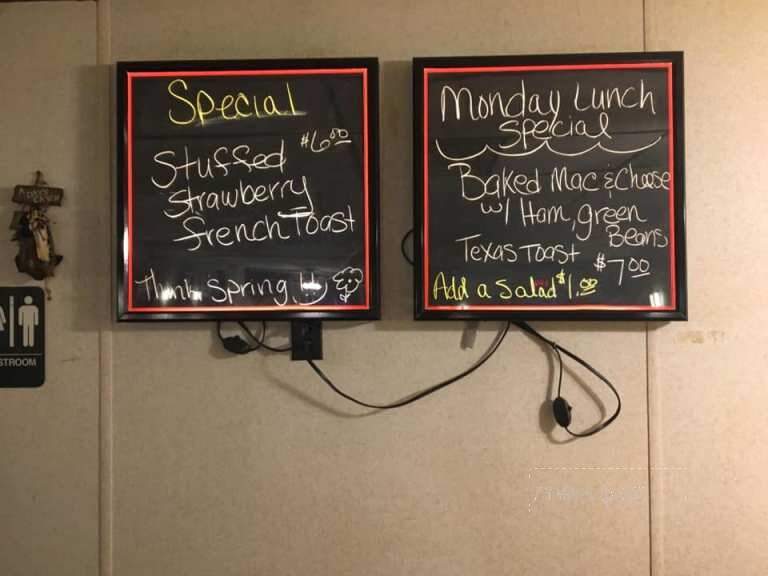 Special
$6.00
Stuffed
Strawberry
French Toast
Think Spring!!
Monday Lunch
Special
Baked Mac & Cheese
w/ Ham, green
Beans
Texas Toast $7.00
Add a Salad $1.00
STROOM